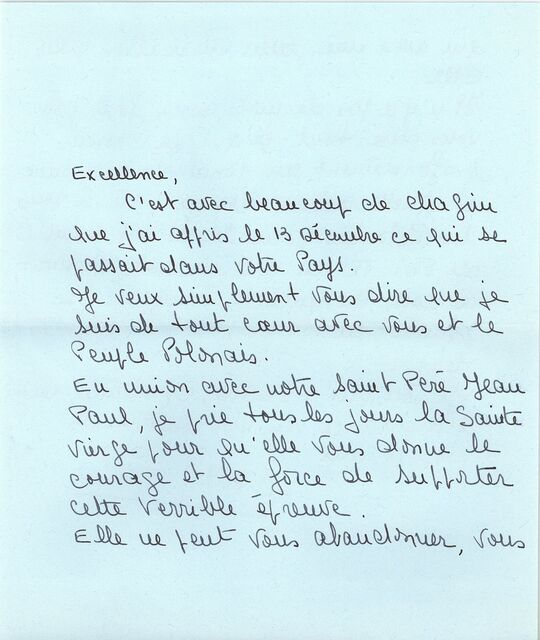 Excellence,
C'est avec beaucoup de chagrin
que j'ai appris le 13 décembre ce qui se
passait dans votre Pays.
Je veux simplement vous dire que je
suis de tout cœur avec vous et le
Peuple Polonais.
En union avec notre Saint Père Jean
Paul, je prie tous les jours la Sainte
Vierge pour qu'elle vous donne le
courage et la force de supporter
cette terrible épreuve.
Elle ne peut vous abandonner, vous